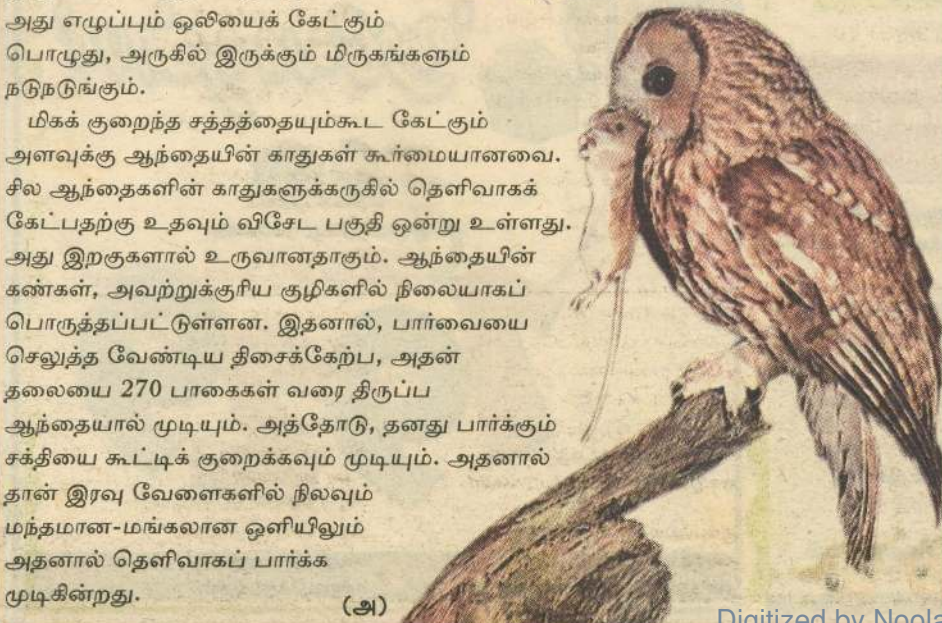 அது எழுப்பும் ஒலியைக் கேட்கும்
பொழுது, அருகில் இருக்கும் மிருகங்களும்
நடுநடுங்கும்.
மிகக் குறைந்த சத்தத்தையும்கூட கேட்கும்
அளவுக்கு ஆந்தையின் காதுகள் கூர்மையானவை.
சில ஆந்தைகளின் காதுகளுக்கருகில் தெளிவாகக்
கேட்பதற்கு உதவும் விசேட பகுதி ஒன்று உள்ளது.
அது இறகுகளால் உருவானதாகும். ஆந்தையின்
கண்கள், அவற்றுக்குரிய குழிகளில் நிலையாகப்
பொருத்தப்பட்டுள்ளன. இதனால், பார்வையை
செலுத்த வேண்டிய திசைக்கேற்ப, அதன்
தலையை 270 பாகைகள் வரை திருப்ப
ஆந்தையால் முடியும். அத்தோடு, தனது பார்க்கும்
சக்தியை கூட்டிக் குறைக்கவும் முடியும். அதனால்
தான் இரவு வேளைகளில் நிலவும்
மந்தமான-மங்கலான ஒளியிலும்
அதனால் தெளிவாகப் பார்க்க
முடிகின்றது.
(அ)
Digitized by Noola